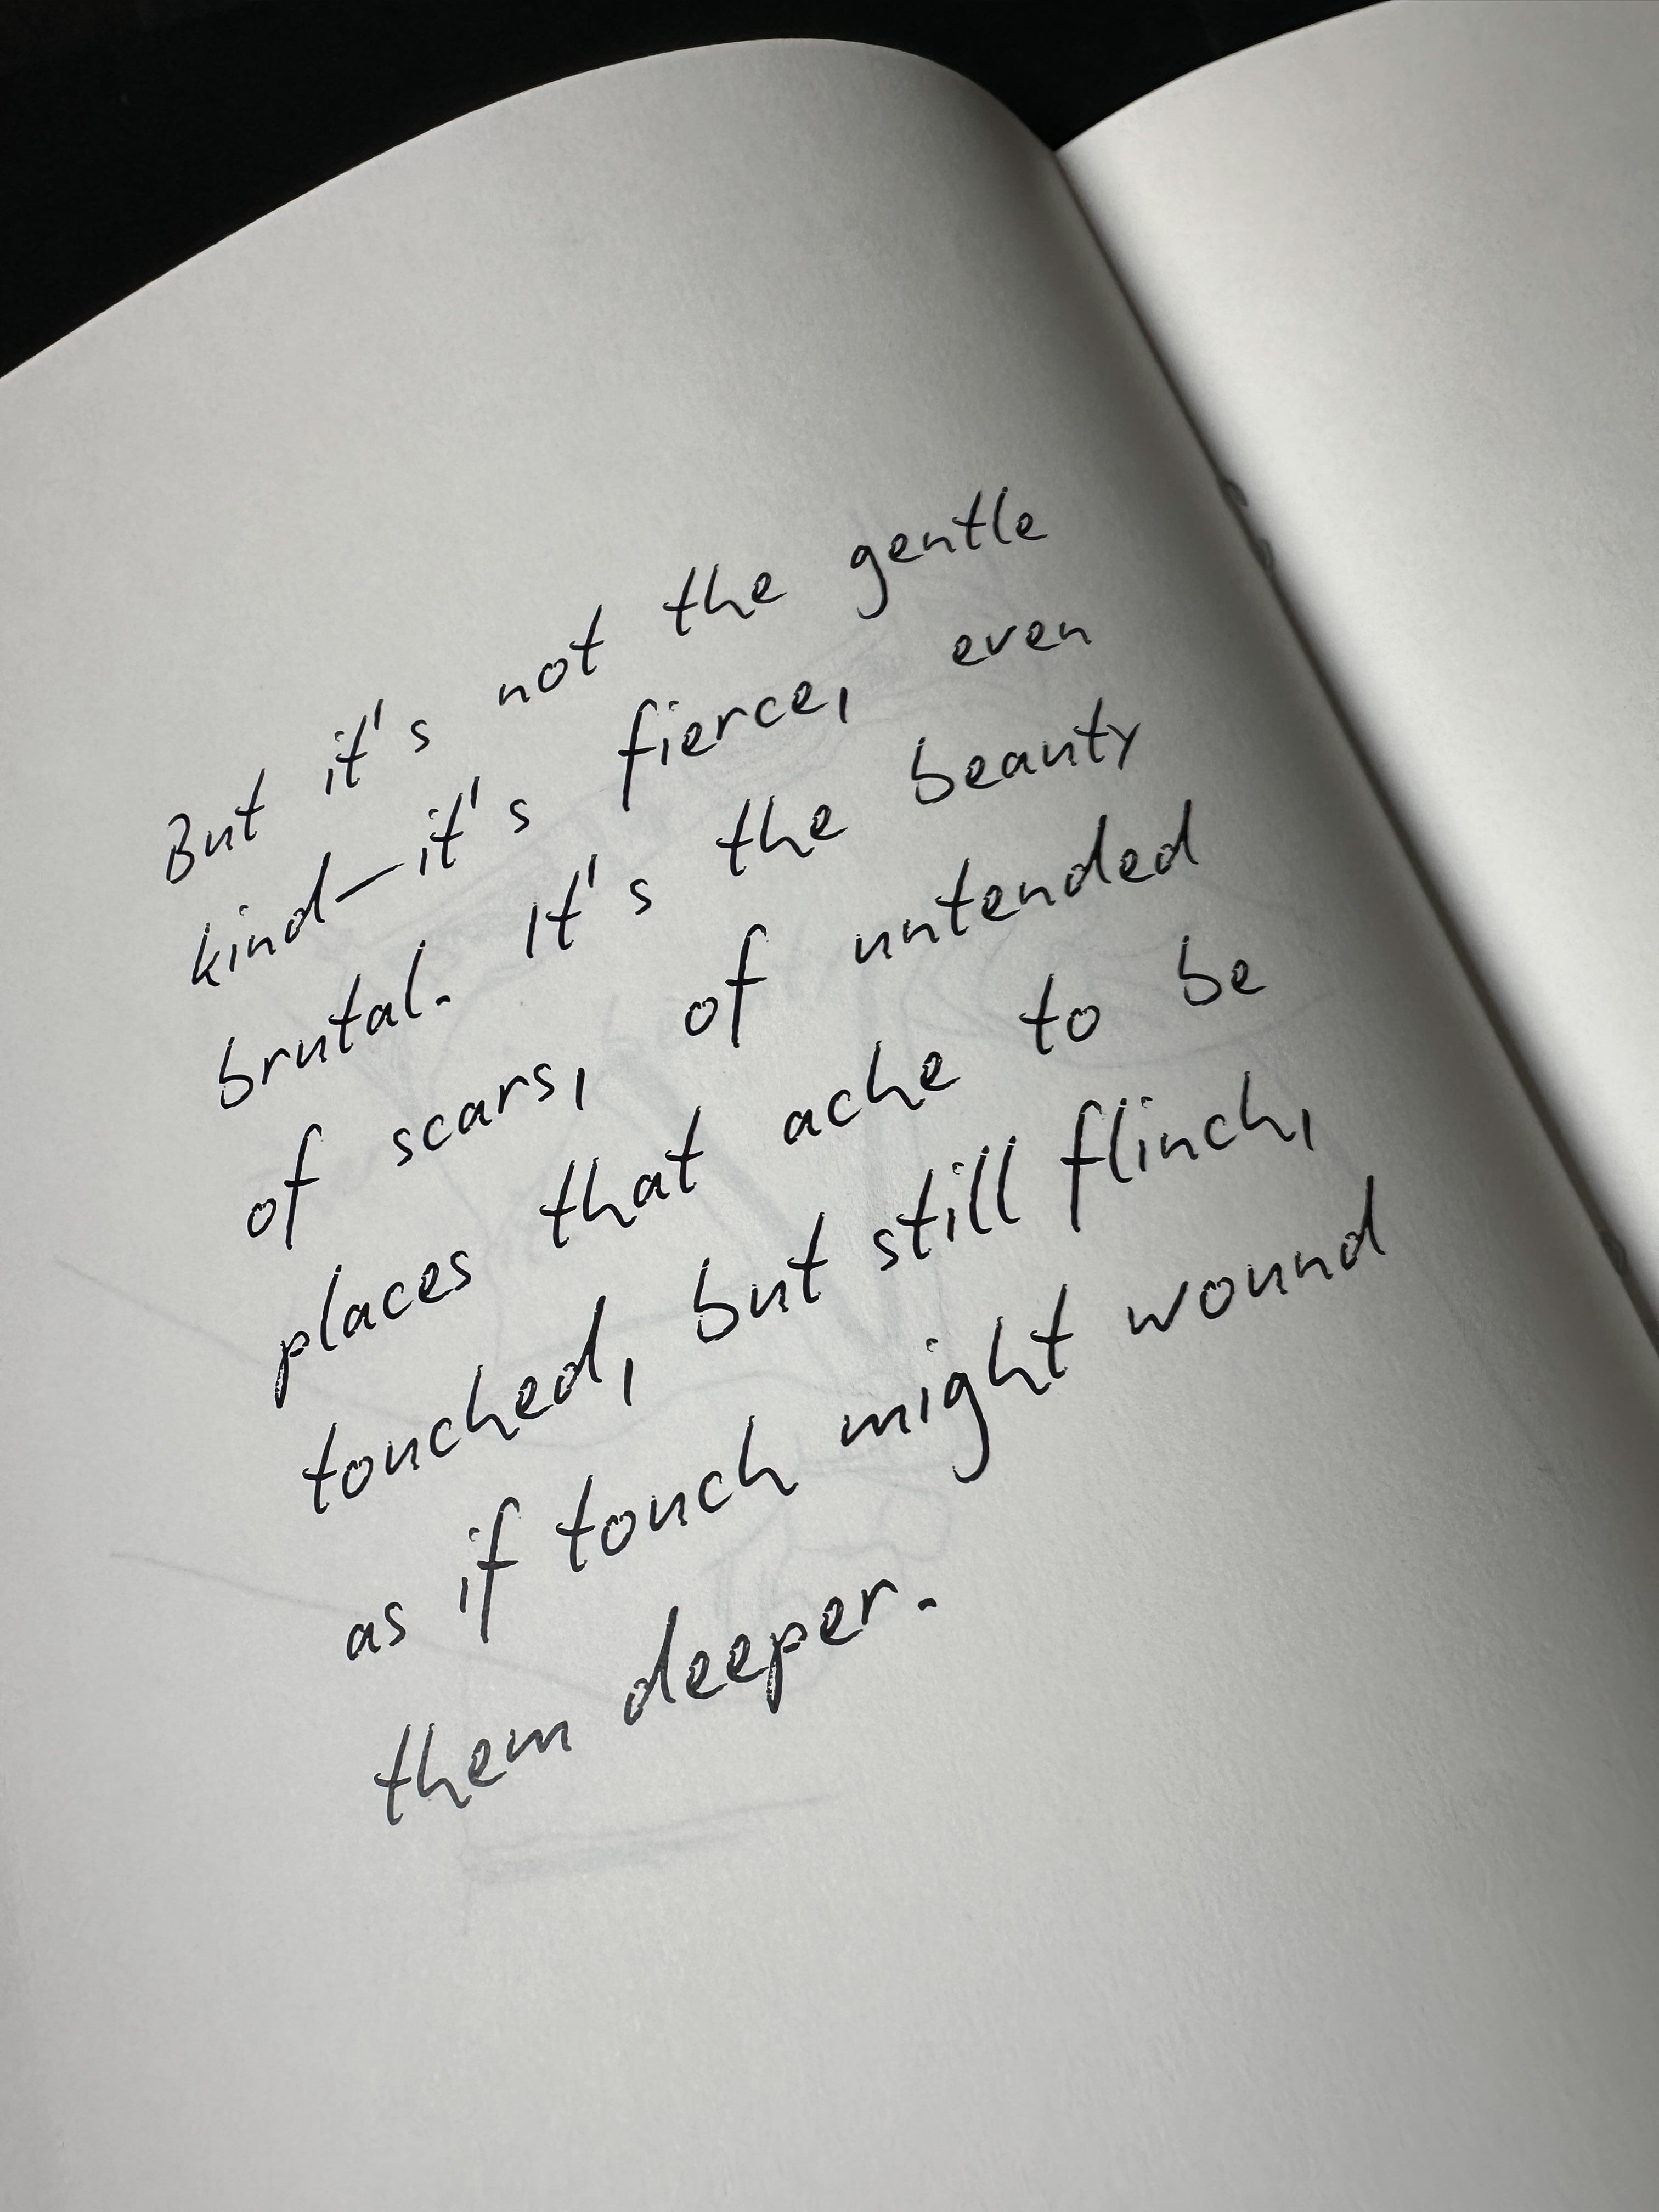 But it's not the gentle
kind—it's fierce, even
brutal. It's the beauty
of scars, of untended
places that ache to be
touched, but still flinch,
as if touch might wound
them deeper.